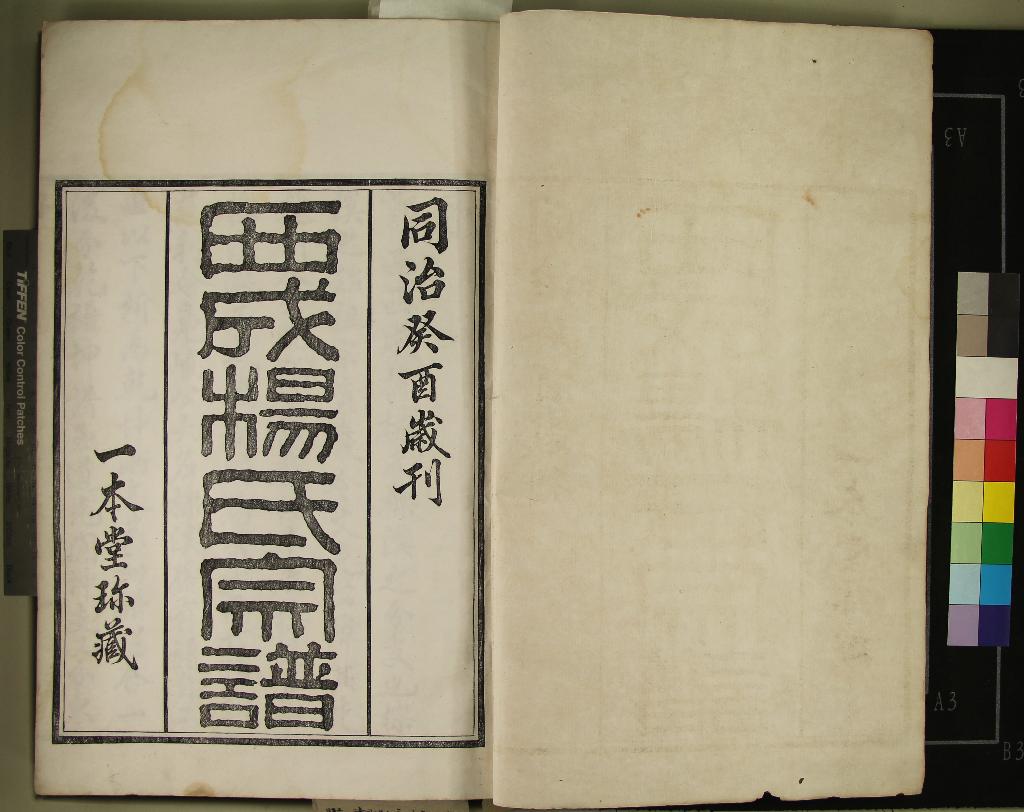 同治癸酉歲刊
西成楊氏宗譜
一本堂珎藏
TIFFEN Color Control Patches
A3
A3
B3